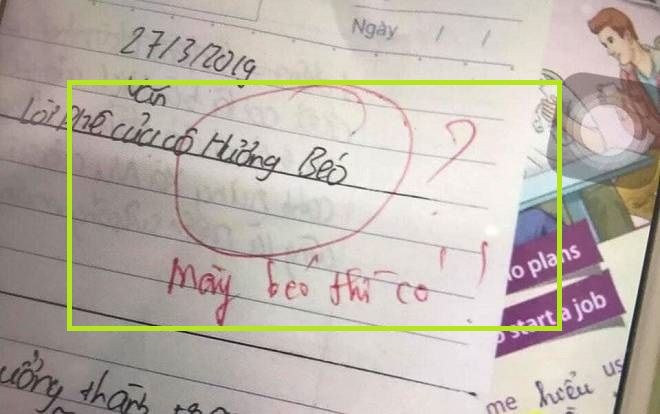 Ngày / /
27/3/2019
Văn
Lời phê của cô Hưởng Béo ?
Mày béo thì có !!
to plans
to start a job
me hiểu us
ưởng thành